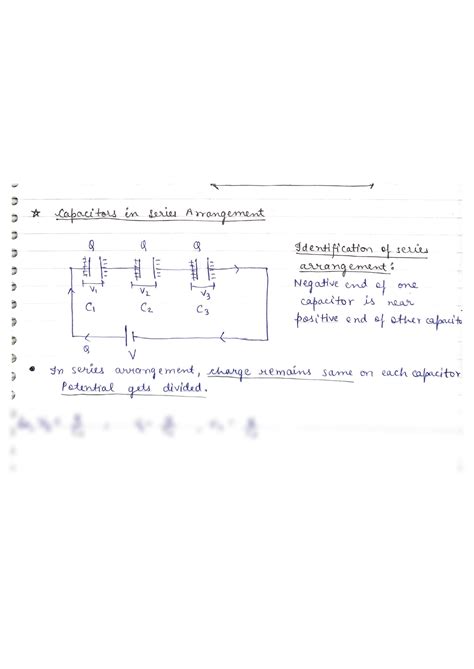 ☆ Capacitors in Series Arrangement
Q Q Q
V1 V2 V3
C1 C2 C3
Q
V
Identification of series
arrangement:
Negative end of one
capacitor is near
positive end of other capacito
• In series arrangement, charge remains same on each capacitor
Potential gets divided.